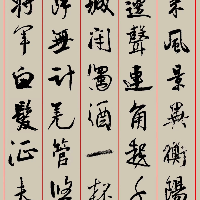 來風景異衡陽
邊聲連角起千
城閉濁酒一杯
歸無計羌管悠
將軍白髮征夫